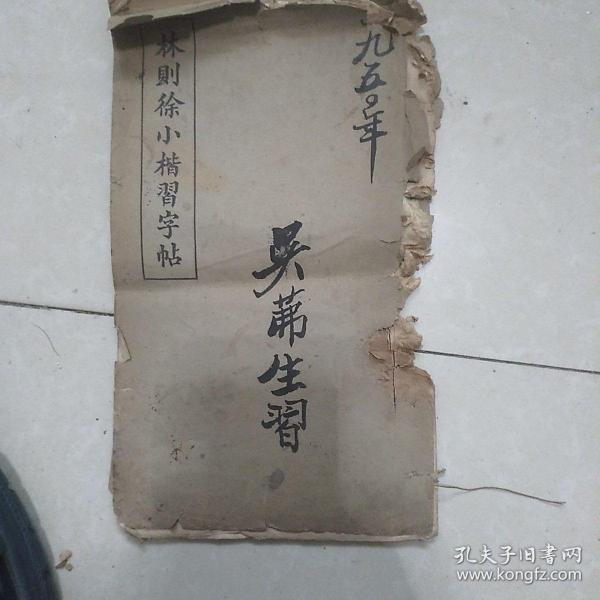 九五〇年
吴茀生習
林則徐小楷習字帖
孔夫子旧書网
www.kongfz.com